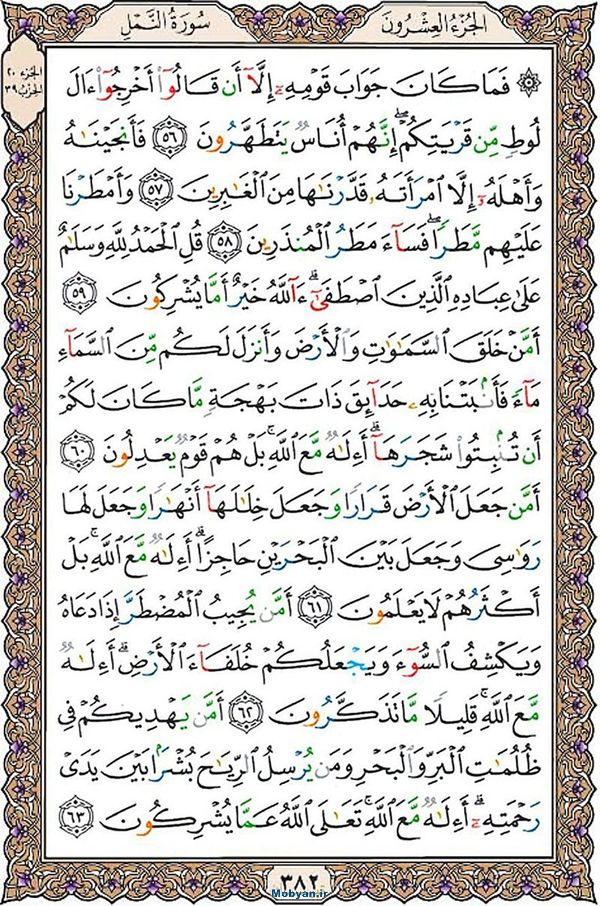 الجُزءُ العِشرُونَ
سُورَةُ النَّمل
الجُزء ٢٠
الحِزب ٣٩
۞ فَمَا كَانَ جَوَابَ قَوْمِهِۦٓ إِلَّآ أَن قَالُوٓا۟ أَخْرِجُوٓا۟ ءَالَ
لُوطٍ مِّن قَرْيَتِكُمْ ۖ إِنَّهُمْ أُنَاسٌ يَتَطَهَّرُونَ ٥٦ فَأَنجَيْنَـٰهُ
وَأَهْلَهُۥٓ إِلَّا ٱمْرَأَتَهُۥ قَدَّرْنَـٰهَا مِنَ ٱلْغَـٰبِرِينَ ٥٧ وَأَمْطَرْنَا
عَلَيْهِم مَّطَرًا ۖ فَسَآءَ مَطَرُ ٱلْمُنذَرِينَ ٥٨ قُلِ ٱلْحَمْدُ لِلَّهِ وَسَلَـٰمٌ
عَلَىٰ عِبَادِهِ ٱلَّذِينَ ٱصْطَفَىٰٓ ۗ ءَآللَّهُ خَيْرٌ أَمَّا يُشْرِكُونَ ٥٩
أَمَّنْ خَلَقَ ٱلسَّمَـٰوَٰتِ وَٱلْأَرْضَ وَأَنزَلَ لَكُم مِّنَ ٱلسَّمَآءِ
مَآءً فَأَنۢبَتْنَا بِهِۦ حَدَآئِقَ ذَاتَ بَهْجَةٍ مَّا كَانَ لَكُمْ
أَن تُنۢبِتُوا۟ شَجَرَهَآ ۗ أَءِلَـٰهٌ مَّعَ ٱللَّهِ ۚ بَلْ هُمْ قَوْمٌ يَعْدِلُونَ ٦٠
أَمَّن جَعَلَ ٱلْأَرْضَ قَرَارًا وَجَعَلَ خِلَـٰلَهَآ أَنْهَـٰرًا وَجَعَلَ لَهَا
رَوَٰسِىَ وَجَعَلَ بَيْنَ ٱلْبَحْرَيْنِ حَاجِزًا ۗ أَءِلَـٰهٌ مَّعَ ٱللَّهِ ۚ بَلْ
أَكْثَرُهُمْ لَا يَعْلَمُونَ ٦١ أَمَّن يُجِيبُ ٱلْمُضْطَرَّ إِذَا دَعَاهُ
وَيَكْشِفُ ٱلسُّوٓءَ وَيَجْعَلُكُمْ خُلَفَآءَ ٱلْأَرْضِ ۗ أَءِلَـٰهٌ
مَّعَ ٱللَّهِ ۚ قَلِيلًا مَّا تَذَكَّرُونَ ٦٢ أَمَّن يَهْدِيكُمْ فِى
ظُلُمَـٰتِ ٱلْبَرِّ وَٱلْبَحْرِ وَمَن يُرْسِلُ ٱلرِّيَـٰحَ بُشْرًۢا بَيْنَ يَدَىْ
رَحْمَتِهِۦٓ ۗ أَءِلَـٰهٌ مَّعَ ٱللَّهِ ۚ تَعَـٰلَى ٱللَّهُ عَمَّا يُشْرِكُونَ ٦٣
٣٨٢
Mobyan.ir